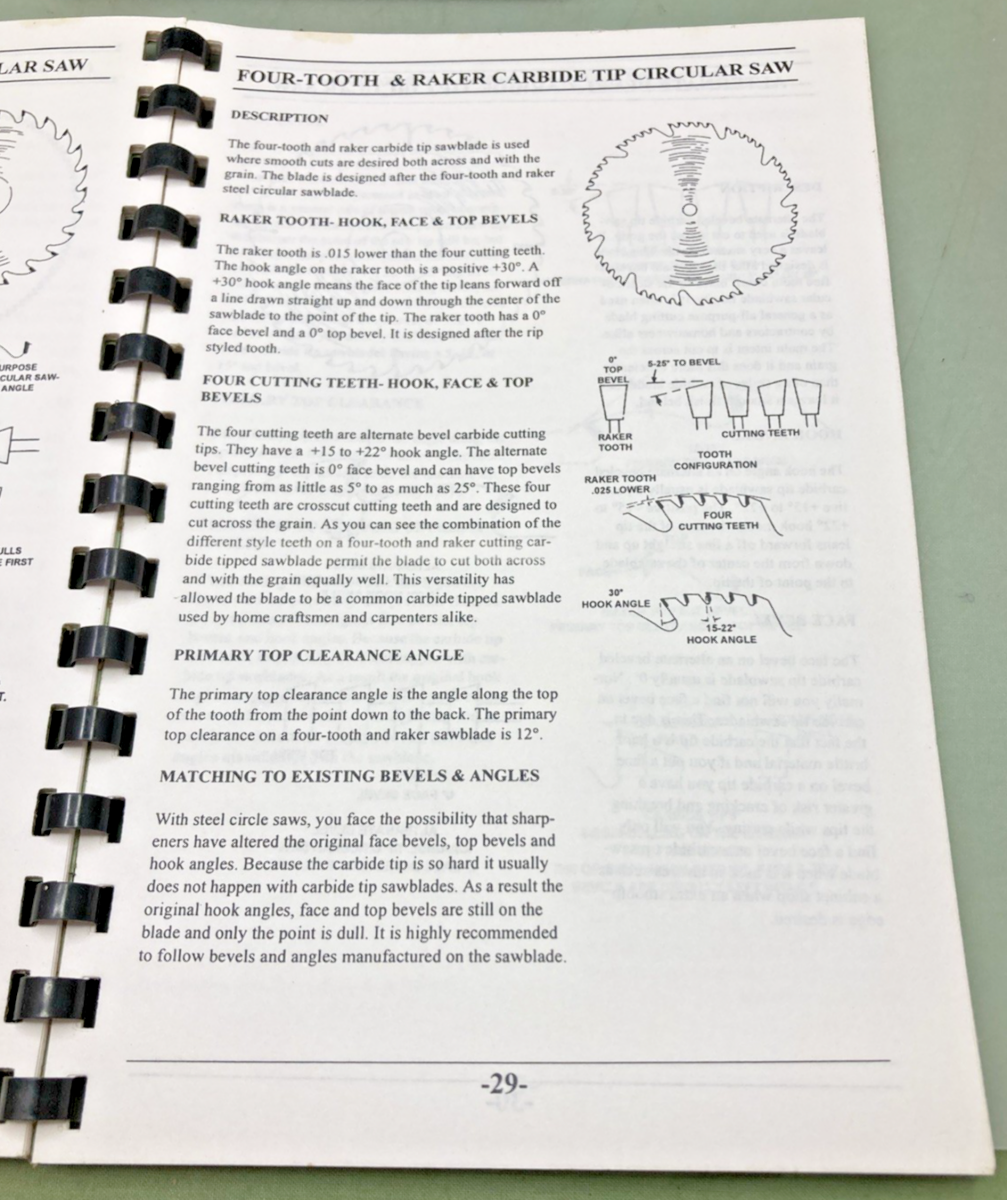 LAR SAW
URPOSE
CULAR SAW-
ANGLE
ULLS
E FIRST
T.
FOUR-TOOTH & RAKER CARBIDE TIP CIRCULAR SAW
DESCRIPTION
The four-tooth and raker carbide tip sawblade is used
where smooth cuts are desired both across and with the
grain. The blade is designed after the four-tooth and raker
steel circular sawblade.
RAKER TOOTH- HOOK, FACE & TOP BEVELS
The raker tooth is .015 lower than the four cutting teeth.
The hook angle on the raker tooth is a positive +30°. A
+30° hook angle means the face of the tip leans forward off
a line drawn straight up and down through the center of the
sawblade to the point of the tip. The raker tooth has a 0°
face bevel and a 0° top bevel. It is designed after the rip
styled tooth.
FOUR CUTTING TEETH- HOOK, FACE & TOP
BEVELS
The four cutting teeth are alternate bevel carbide cutting
tips. They have a +15 to +22° hook angle. The alternate
bevel cutting teeth is 0° face bevel and can have top bevels
ranging from as little as 5° to as much as 25°. These four
cutting teeth are crosscut cutting teeth and are designed to
cut across the grain. As you can see the combination of the
different style teeth on a four-tooth and raker cutting car-
bide tipped sawblade permit the blade to cut both across
and with the grain equally well. This versatility has
allowed the blade to be a common carbide tipped sawblade
used by home craftsmen and carpenters alike.
PRIMARY TOP CLEARANCE ANGLE
The primary top clearance angle is the angle along the top
of the tooth from the point down to the back. The primary
top clearance on a four-tooth and raker sawblade is 12°.
MATCHING TO EXISTING BEVELS & ANGLES
With steel circle saws, you face the possibility that sharp-
eners have altered the original face bevels, top bevels and
hook angles. Because the carbide tip is so hard it usually
does not happen with carbide tip sawblades. As a result the
original hook angles, face and top bevels are still on the
blade and only the point is dull. It is highly recommended
to follow bevels and angles manufactured on the sawblade.
0°
TOP
BEVEL
5-25° TO BEVEL
RAKER
TOOTH
CUTTING TEETH
TOOTH
CONFIGURATION
RAKER TOOTH
.025 LOWER
FOUR
CUTTING TEETH
30°
HOOK ANGLE
15-22°
HOOK ANGLE
-29-